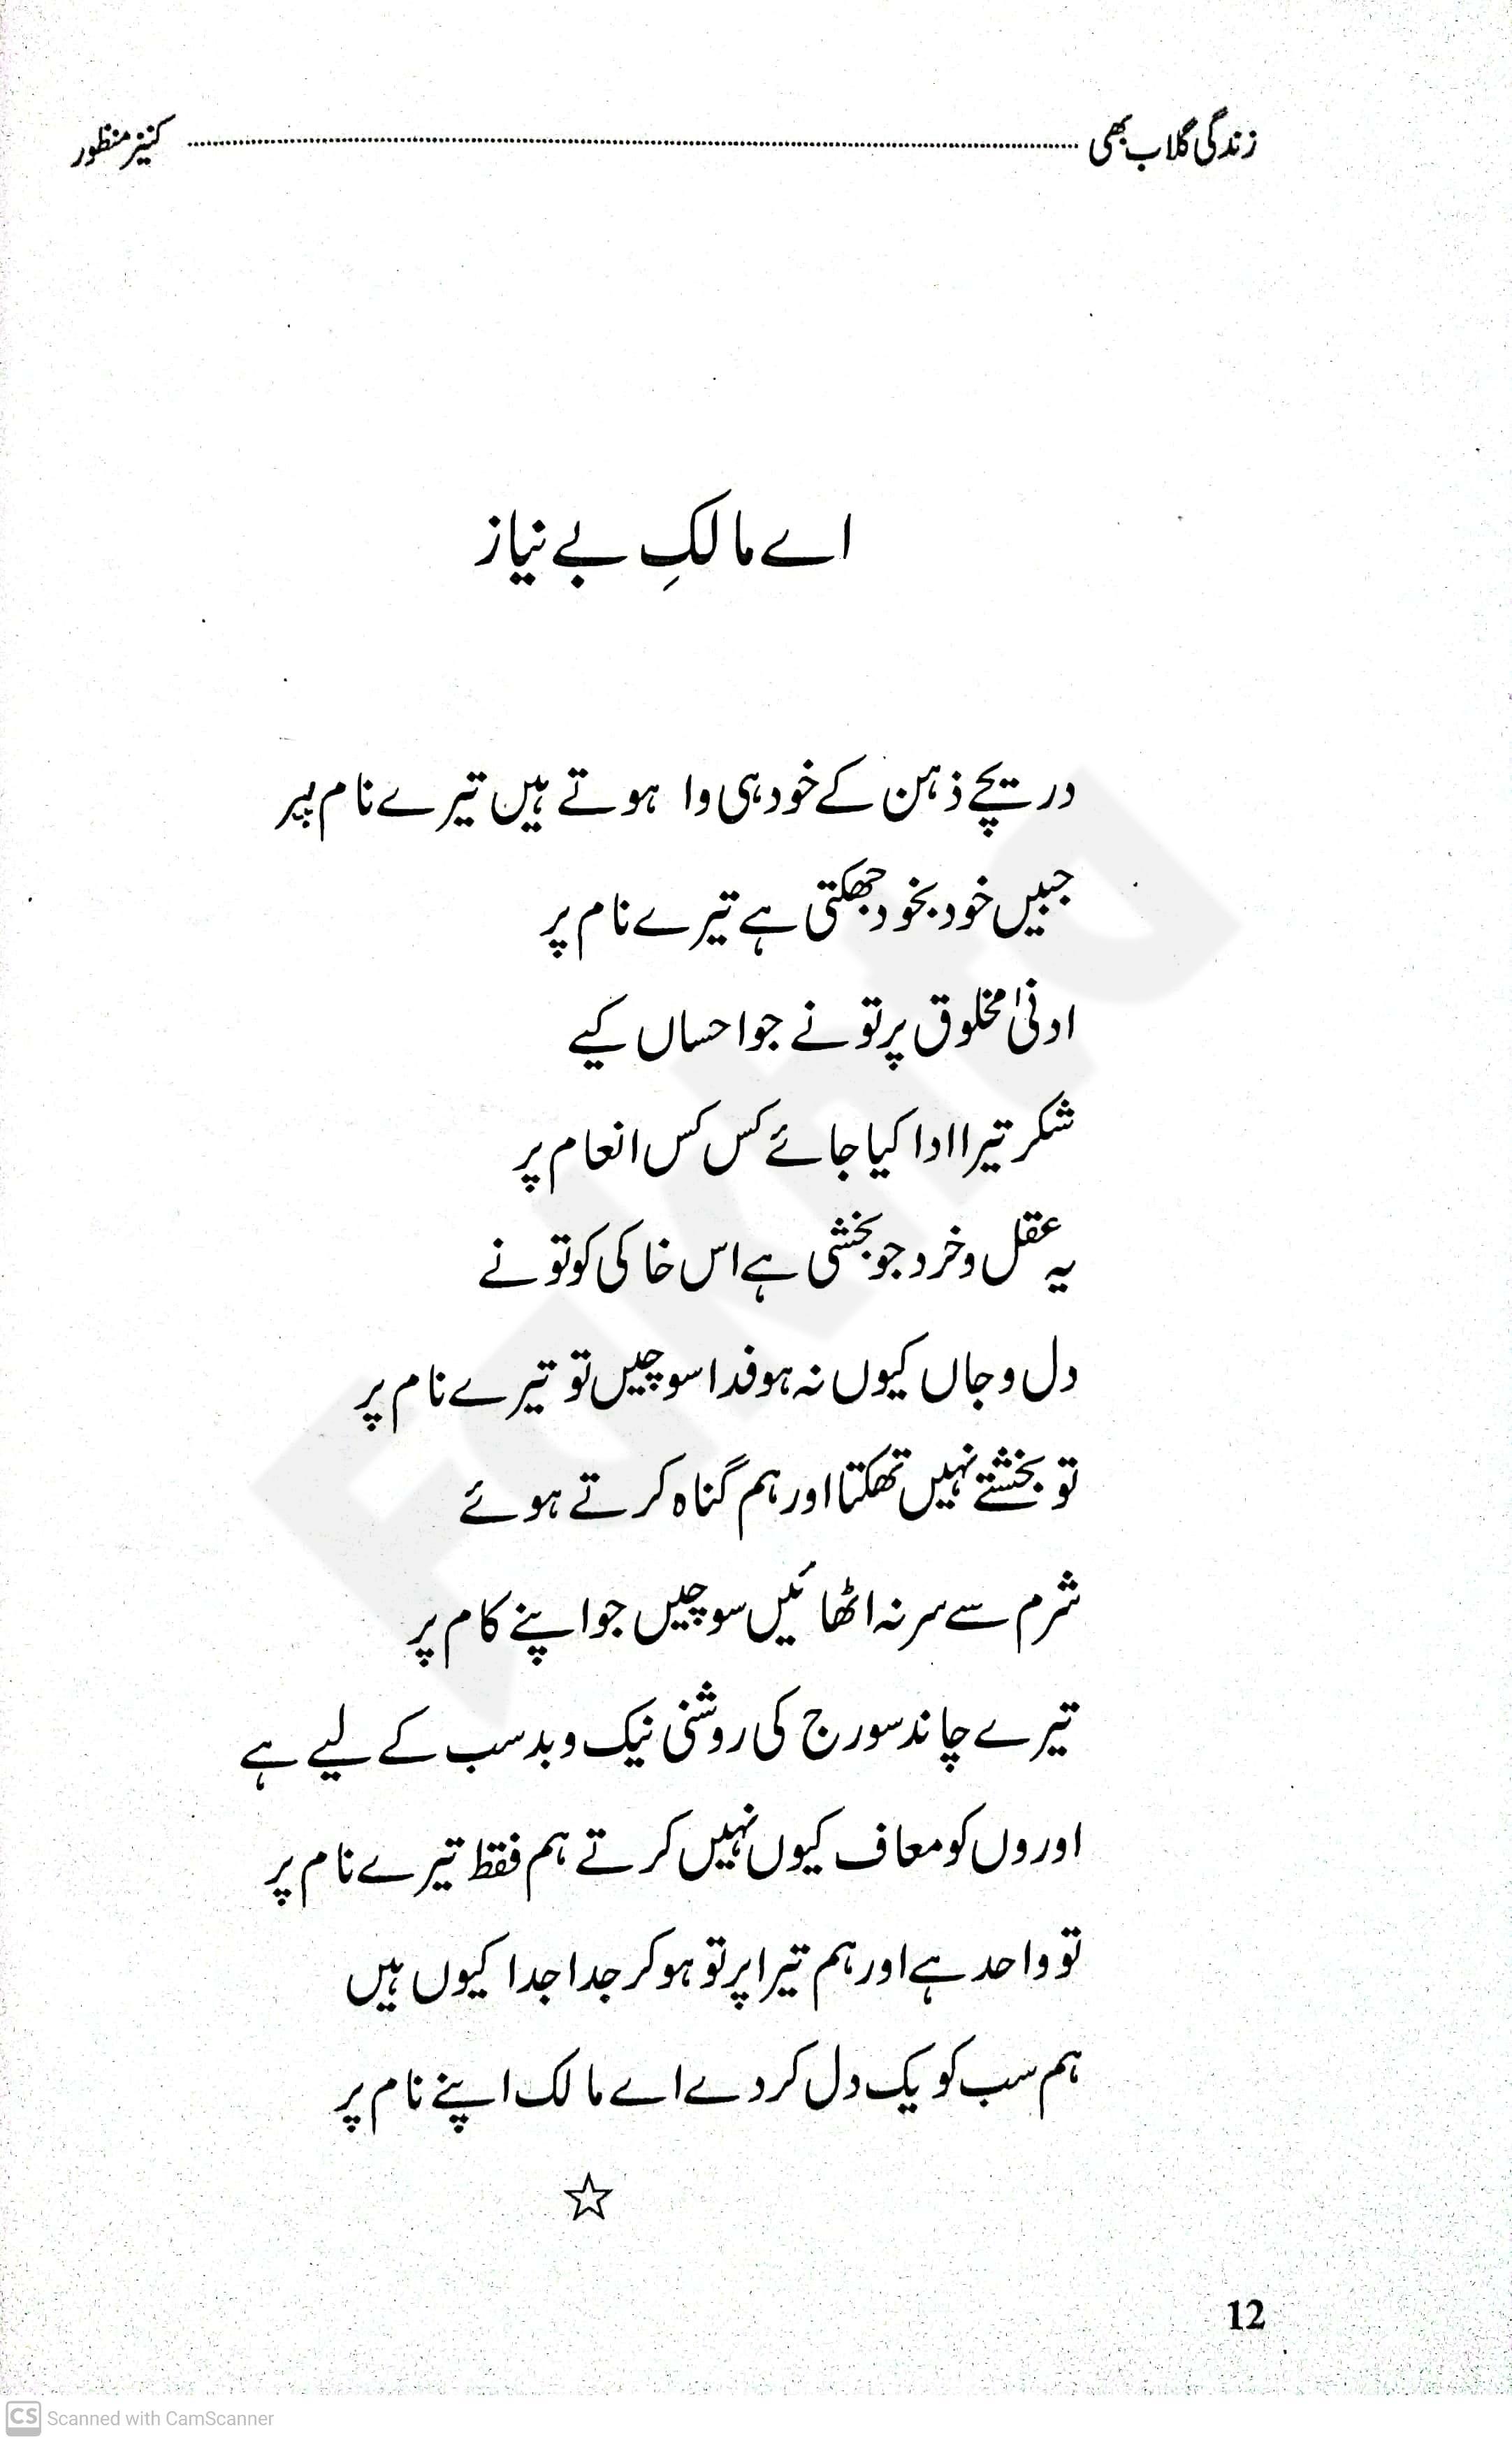 زندگی گلاب بھی ........ کنیز منظور
اے مالکِ بے نیاز
دریچے ذہن کے خود ہی وا ہوتے ہیں تیرے نام پر
جبیں خود بخود جھکتی ہے تیرے نام پر
ادنیٰ مخلوق پر تو نے جو احساں کیے
شکر تیرا ادا کیا جائے کس کس انعام پر
یہ عقل و خرد جو بخشی ہے اس خاکی کو تو نے
دل و جاں کیوں نہ ہو فدا سوچیں تو تیرے نام پر
تو بخشتے نہیں تھکتا اور ہم گناہ کرتے ہوئے
شرم سے سر نہ اٹھائیں سوچیں جو اپنے کام پر
تیرے چاند سورج کی روشنی نیک و بد سب کے لیے ہے
اوروں کو معاف کیوں نہیں کرتے ہم فقط تیرے نام پر
تو واحد ہے اور ہم تیرا پرتو ہو کر جدا جدا کیوں ہیں
ہم سب کو یک دل کر دے اے مالک اپنے نام پر
☆
12
CS Scanned with CamScanner